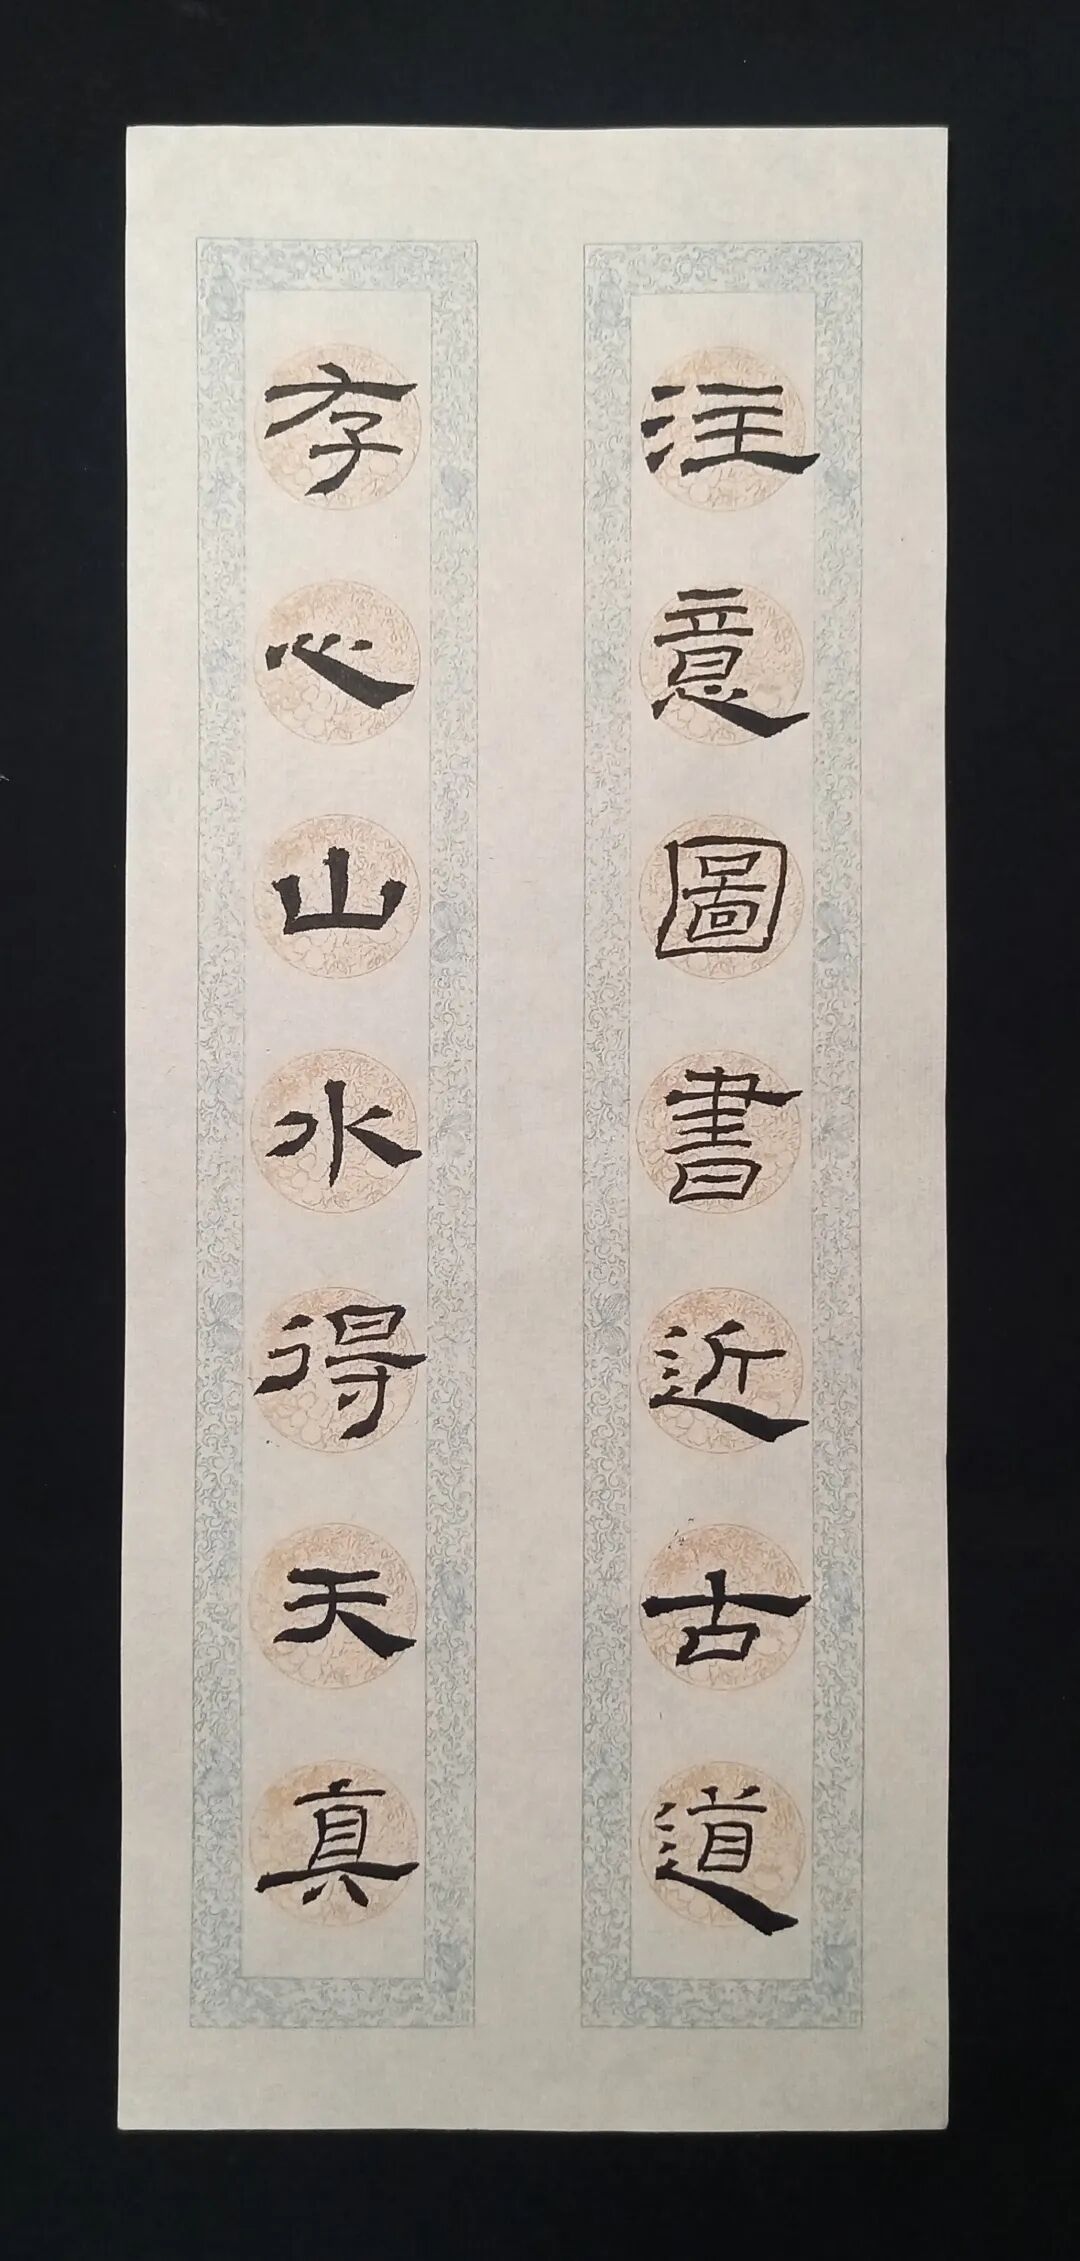 注意圖書近古道
存心山水得天真